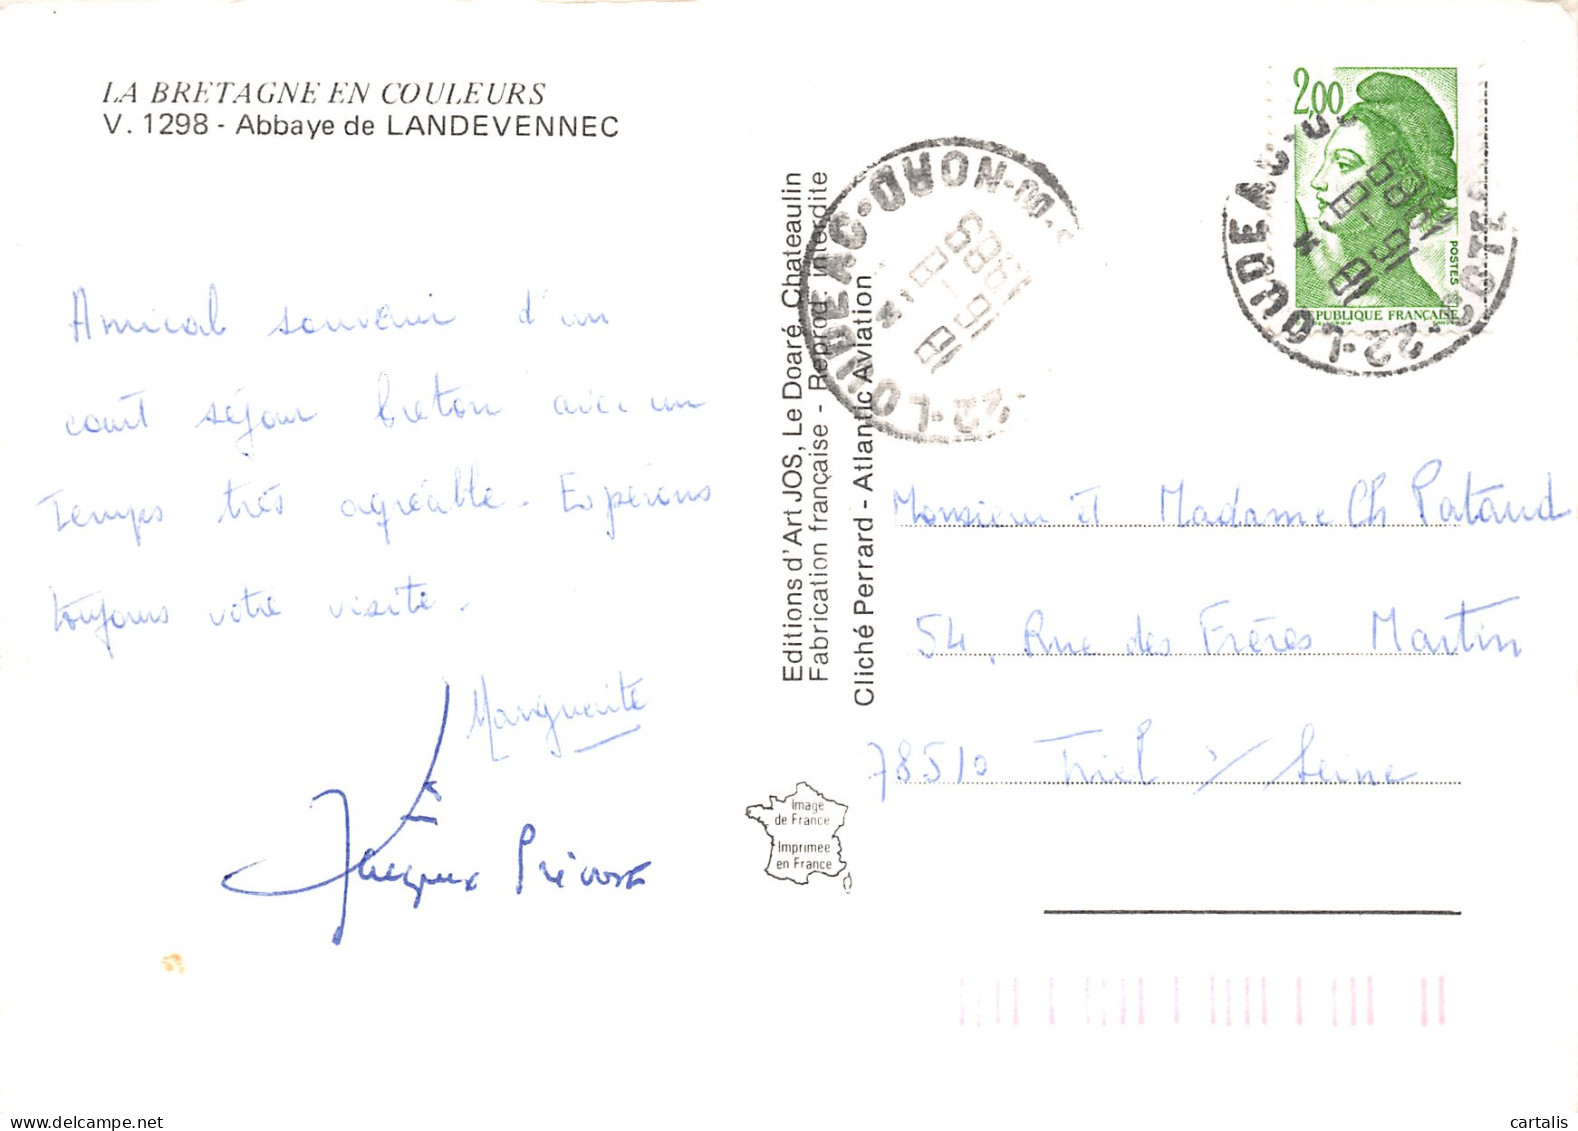 LA BRETAGNE EN COULEURS
V. 1298 - Abbaye de LANDEVENNEC
Amical souvenir d'un
court séjour breton avec un
temps très agréable. Espérons
toujours votre visite.
Marguerite
Jacques Prévost
Editions d'Art JOS, Le Doaré, Chateaulin
Fabrication française - Reprod. interdite
Cliché Perrard - Atlantic Aviation
Image
de France
Imprimée
en France
22-LOUDEAC-NORD
16-8
1989
2,00
POSTES
REPUBLIQUE FRANÇAISE
22-LOUDEAC
COTES
16-8
1989
Monsieur et Madame Ch Pataud
54, Rue des Frères Martin
78510 Triel s/ Seine
cartalis